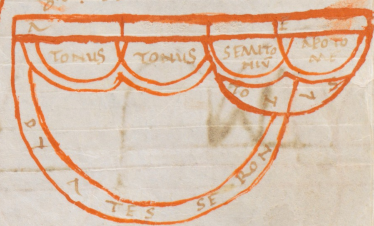 TONUS
TONUS
SEMITO
NIV
APOTO
ME
TONVS
DIA TES SE RON